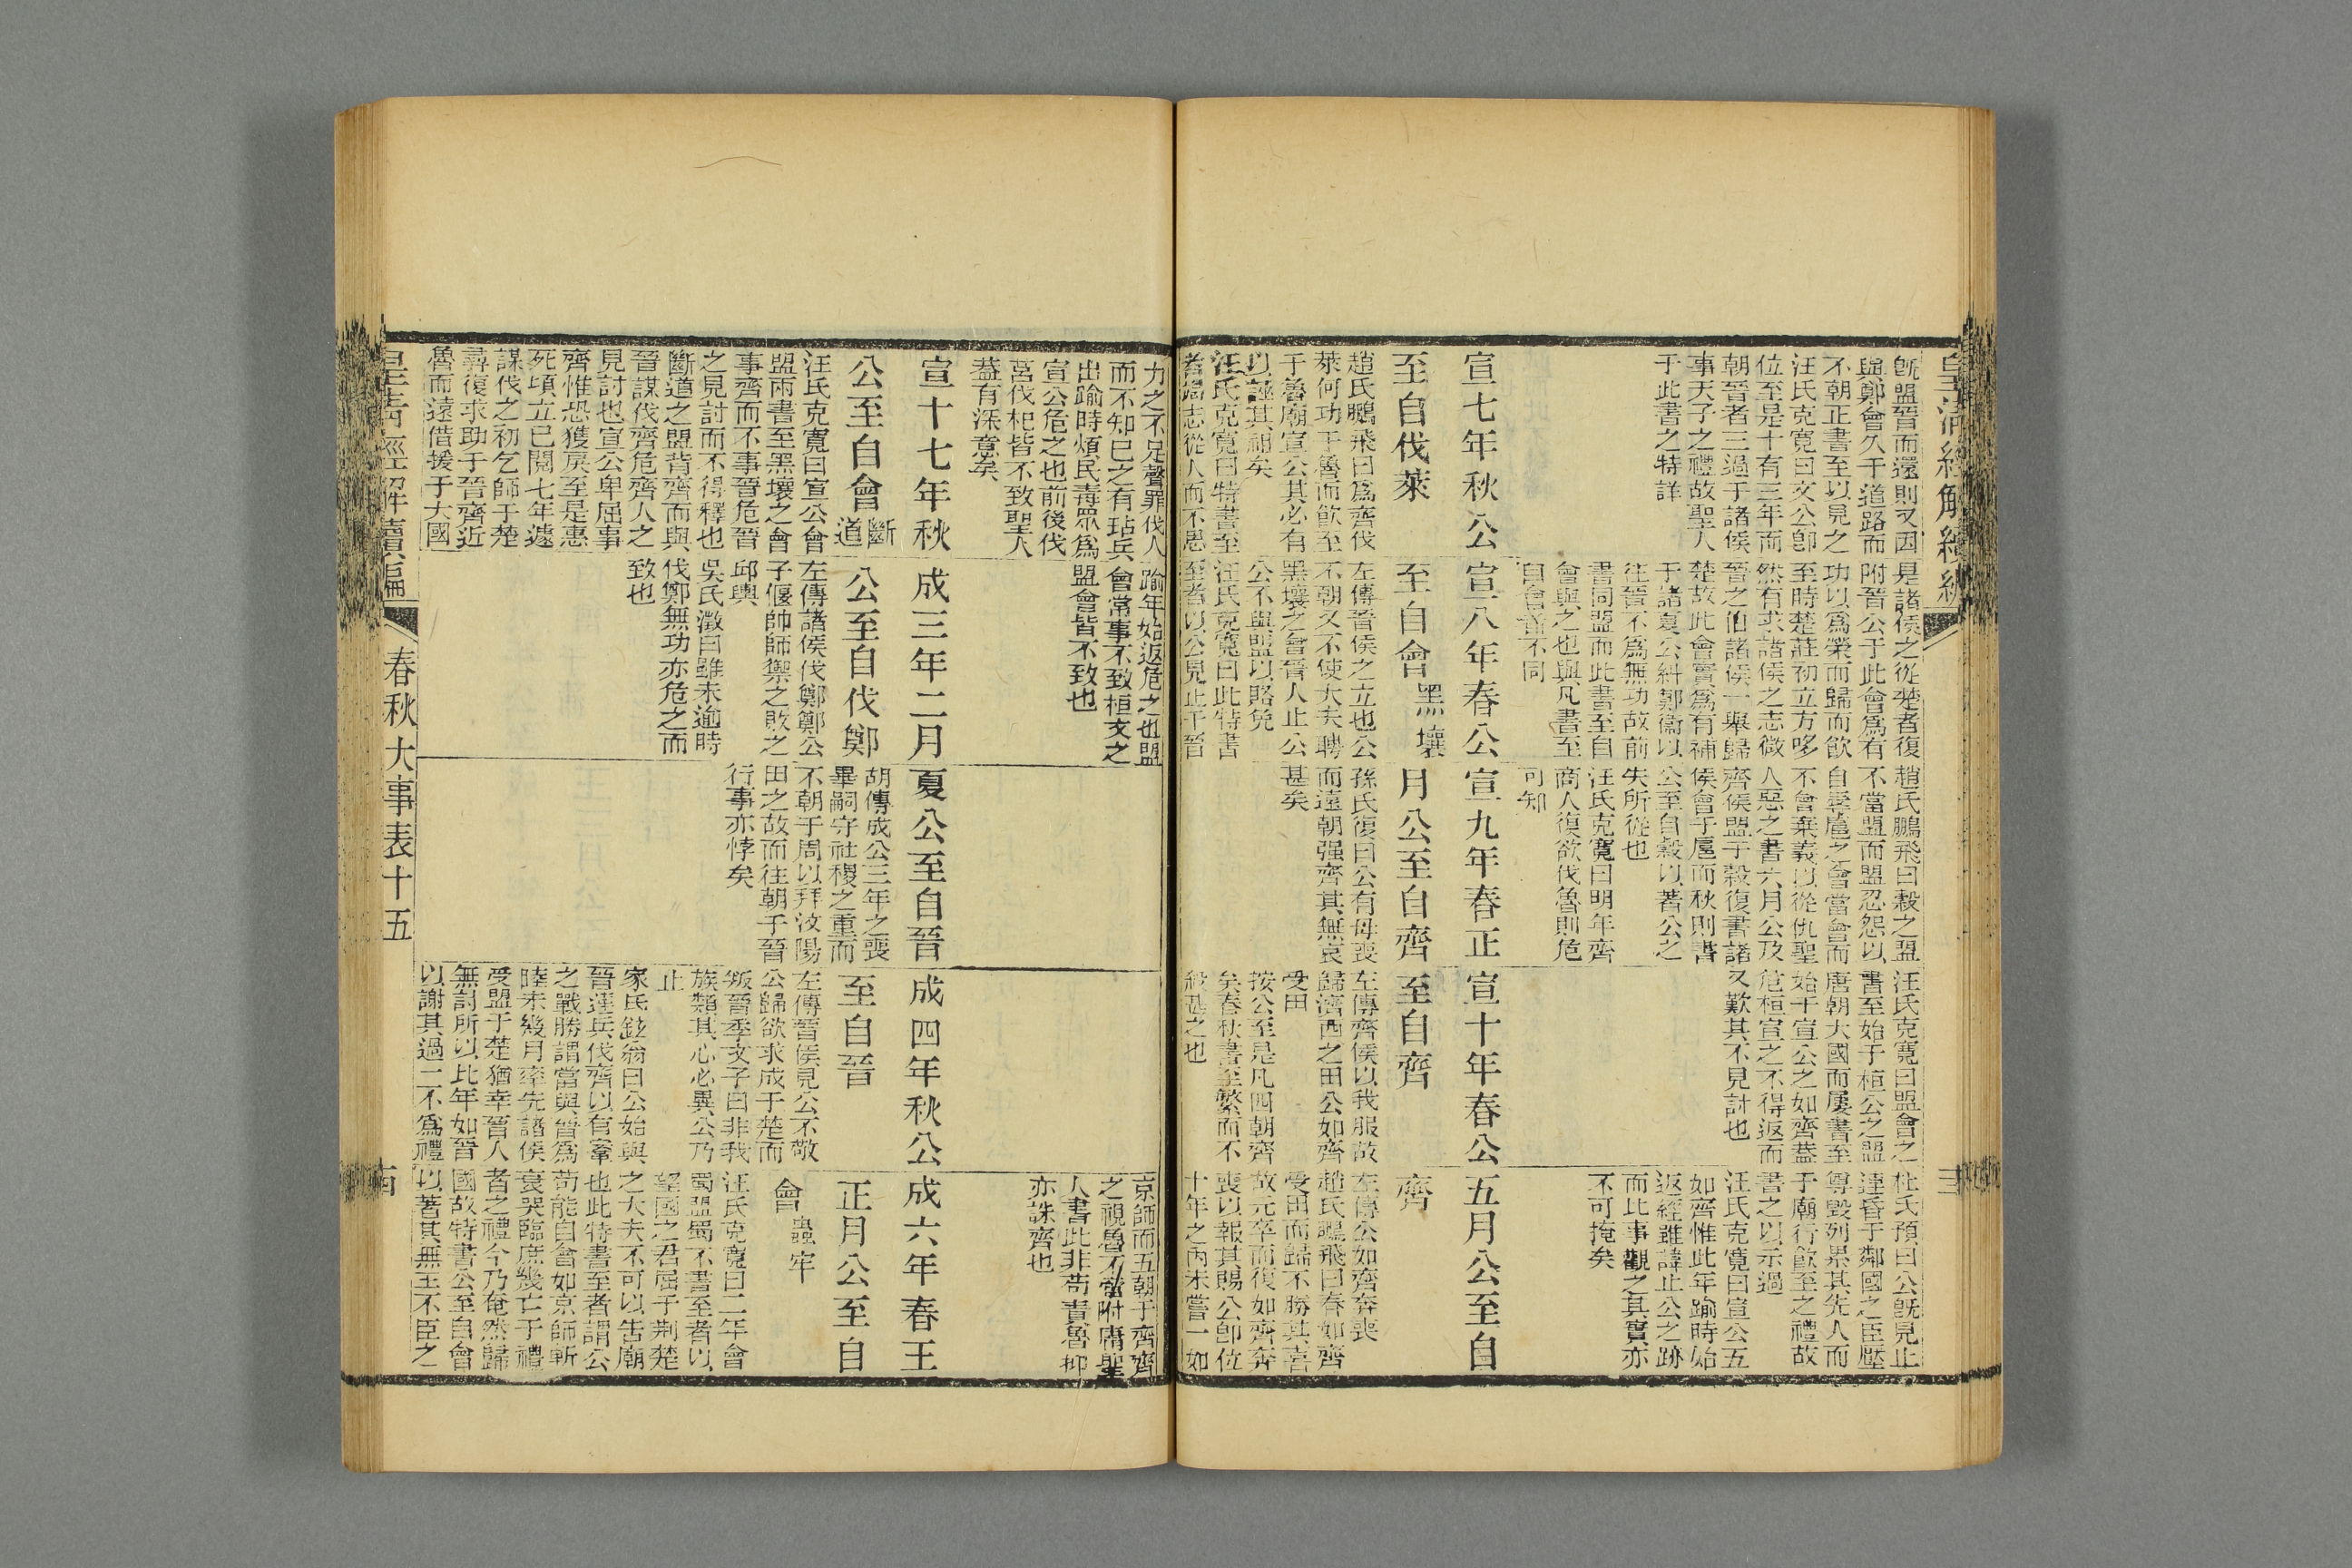 皇清經解續編
既盟晉而還則又因
與鄭會久于道路而
不朝正書至以見之
汪氏克寬曰文公卽
位至是十有三年而
朝晉者三過于諸侯
事天子之禮故聖人
于此書之特詳
宣七年秋公
至自伐萊
趙氏鵬飛曰爲齊伐
萊何功于魯而飮至
于魯廟宣公其必有
以誣其祖矣
汪氏克寬曰特書至
者歸志從人而不恩
是諸侯之從楚者復
附晉公于此會爲有
功以爲榮而歸而飮
至時楚莊初立方哆
然有求諸侯之志微
晉之伯諸侯一舉歸
楚故此會實爲有補
于諸夏公糾鄭衞以
往晉不爲無功故前
書同盟而此書至自
會與之也與凡書至
自會者不同
宣八年春公
至自會 黑壤
左傳晉侯之立也公
不朝又不使大夫聘
黑壤之會晉人止公
公不與盟以賂免
汪氏克寬曰此特書
至者以公見止于晉
趙氏鵬飛曰穀之盟
不當盟而盟忍怨以
自辱扈之會當會而
不會棄義以從仇聖
人惡之書六月公及
齊侯盟于穀復書諸
侯會于扈而秋則書
公至自穀以著公之
失所從也
汪氏克寬曰明年齊
商人復欲伐魯則危
可知
宣九年春正
月公至自齊
孫氏復曰公有母喪
而遠朝强齊其無哀
甚矣
汪氏克寬曰盟會之
書至始于桓公之盟
唐朝大國而屢書至
始于宣公之如齊蓋
危桓宣之不得返而
又歎其不見討也
宣十年春公
至自齊
左傳齊侯以我服故
歸濟西之田公如齊
受田
按公至是凡四朝齊
矣春秋書至繁而不
殺甚之也
杜氏預曰公旣見止
連昏于鄰國之臣壓
尊毀列累其先人而
于廟行飮至之禮故
書之以示過
汪氏克寬曰宣公五
如齊惟此年踰時始
返經雖諱止公之跡
而比事觀之其實亦
不可掩矣
五月公至自
齊
左傳公如齊奔喪
趙氏鵬飛曰春如齊
受田而歸不勝其喜
故元卒而復如齊奔
喪以報其賜公卽位
十年之內未嘗一如
力之不足聲罪伐人
而不知已之有玷兵
出踰時煩民毒眾爲
宣公危之也前後伐
莒伐杞皆不致聖人
蓋有深意矣
宣十七年秋
公至自會 斷道
汪氏克寬曰宣公會
盟兩書至黑壤之會
事齊而不事晉危晉
之見討而不得釋也
斷道之盟背齊而與
晉謀伐齊危齊人之
見討也宣公卑屈事
齊惟恐獲戾至是惠
死頃立已閱七年遽
謀伐之初乞師于楚
尋復求助于晉齊近
魯而遠借援于大國
踰年始返危之也盟
會常事不致桓文之
盟會皆不致也
成三年二月
公至自伐鄭
左傳諸侯伐鄭鄭公
子偃帥師禦之敗之
邱輿
吳氏澂曰雖未逾時
伐鄭無功亦危之而
致也
夏公至自晉
胡傳成公三年之喪
畢嗣守社稷之重而
不朝于周以拜汶陽
田之故而往朝于晉
行事亦悖矣
成四年秋公
至自晉
左傳晉侯見公不敬
公歸欲求成于楚而
叛晉季文子曰非我
族類其心必異公乃
止
家氏鉉翁曰公始與
晉連兵伐齊以有鞌
之戰勝謂當與晉爲
睦未幾月率先諸侯
受盟于楚猶幸晉人
無討所以比年如晉
以謝其過二不爲禮
京師而五朝于齊齊
之視魯不啻附庸聖
人書此非苟責魯抑
亦誅齊也
成六年春王
正月公至自
會 蟲牢
汪氏克寬曰二年會
蜀盟蜀不書至者以
望國之君屈于荆楚
之大夫不可以告廟
也此特書至者謂公
苟能自會如京師斬
衰哭臨庶幾亡于禮
者之禮今乃奄然歸
國故特書公至自會
以著其無王不臣之
皇清經解續編
春秋大事表十五